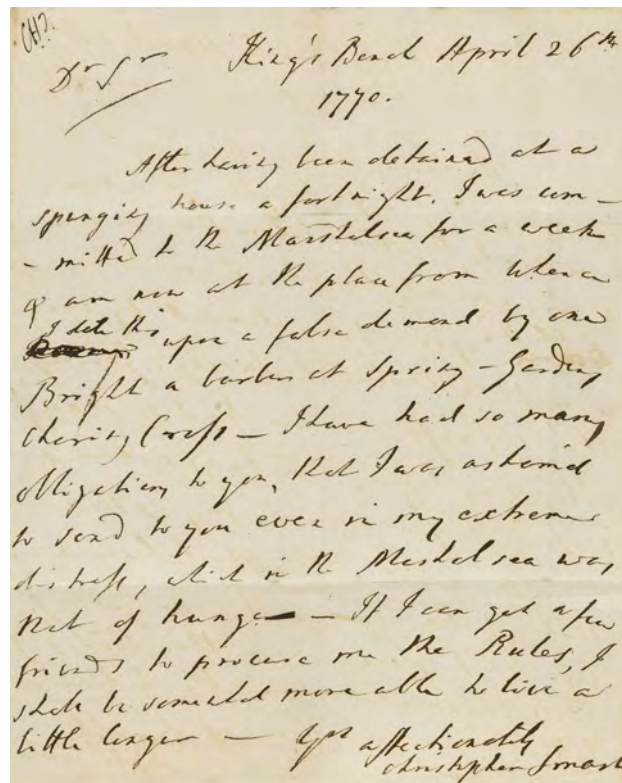 Dr Sr King's Bench April 26th
1770.
After having been detained at a
spunging house a fortnight, I was com-
-mitted to the Marshalsea for a week
& am now at the place from whence
I date this upon a false demand by one
Bright a barber at Spring-Garden,
Charing Cross — I have had so many
obligations to you, that I was asham'd
to send to you even in my extreme
distress, which in the Marshalsea was
that of hunger — If I can get a few
friends to procure me the Rules, I
shall be somewhat more able to live a
little longer — Yrs affectionately
Christopher Smart